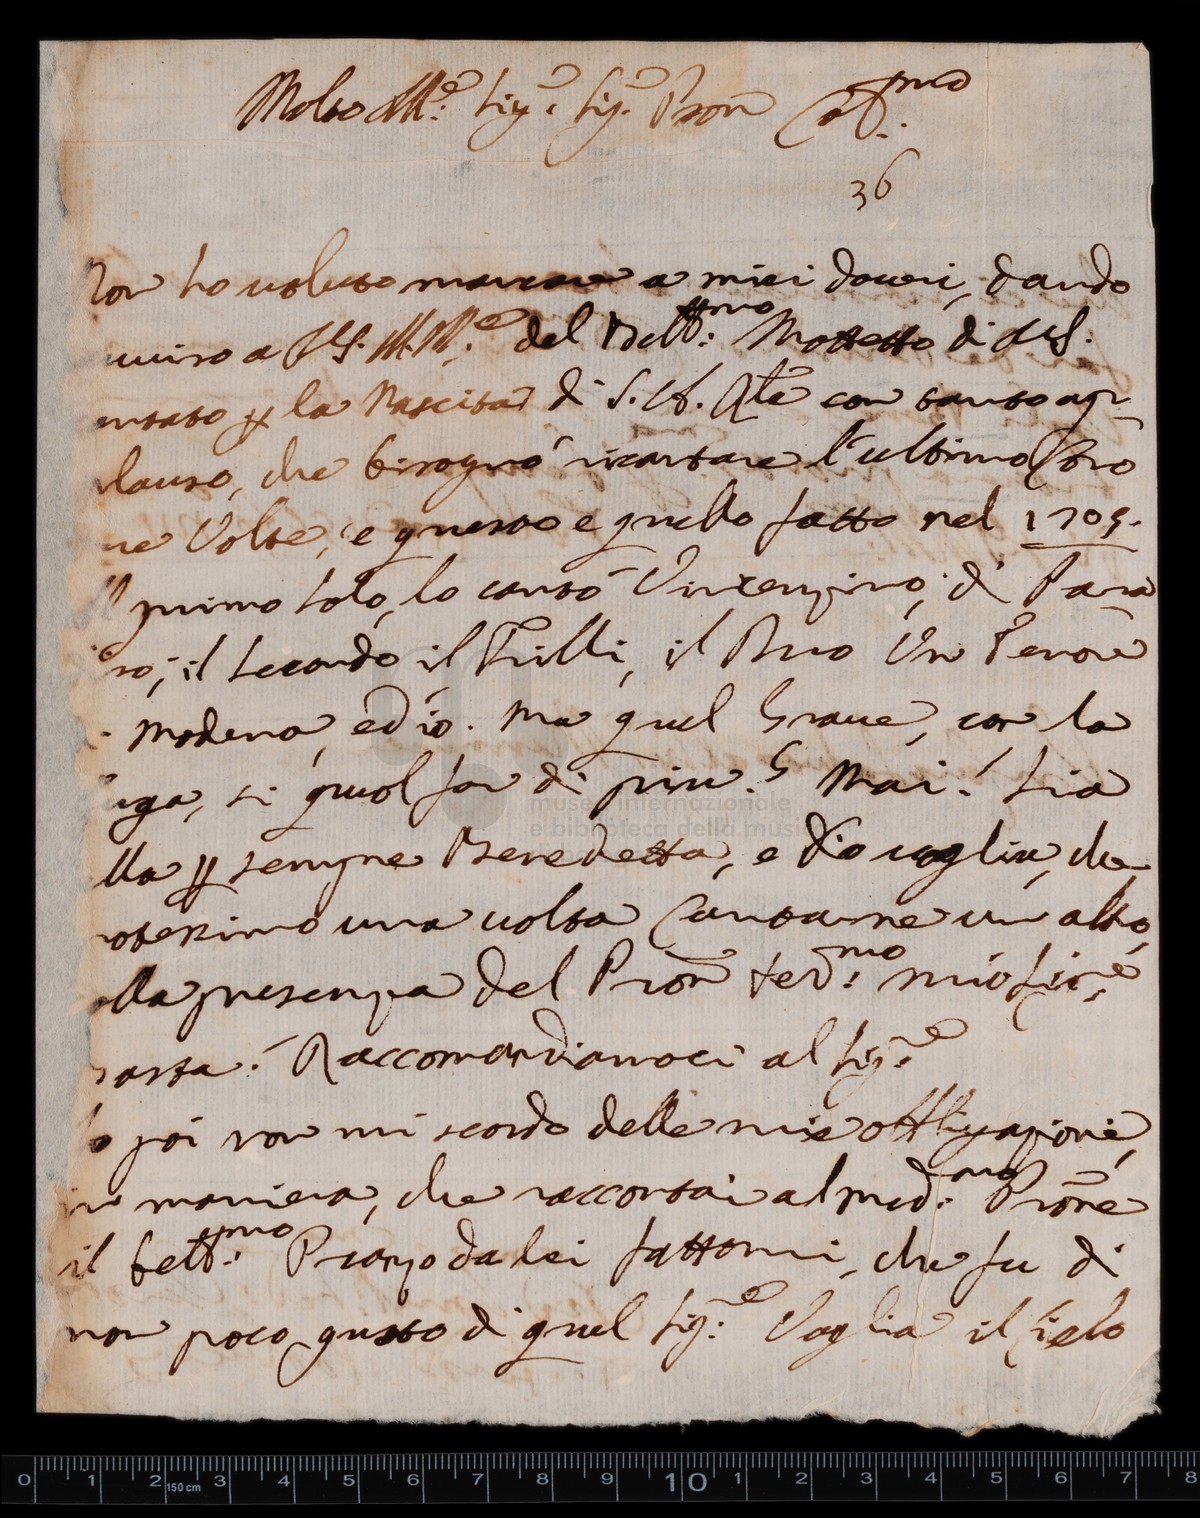 Molto Ill.e Sig.e Sig.e Pron Col.mo
36
Non ho voluto mancare a miei doveri, dando
uviso a VS. M. Ill.e del Bell.mo Mottetto di VS.
antato p la Nascita di S. A. Alt.a con tanto ap-
lauso, che bisognò ricantare l'ultimo Coro
ue Volte, e questo e quello fatto nel 1709.
Il primo solo, lo cantò Vincenzino, di Para
iso, il secondo il Trilli, il Basso Un Tenore
Modena, ed io. Ma quel Grave, con la
uga, si può far di più? Mai! Sia
lla p sempre Benedetta, e Dio voglia, che
otessimo una volta Cantarne un altro,
lla presenza del Pron Ser.mo mio Sig.e
asta! Raccomandiamoci al Sig.e
Io poi non mi scordo delle mie obbligazioni,
in maniera, che raccontai al med.mo Prone
il bell.mo Pranzo da lei fattomi, che fu di
non poco gusto di quel Sig.e Voglia il Cielo
museo internazionale
e biblioteca della musica
0 1 2 3 4 5 6 7 8 9 10 1 2 3 4 5 6 7 8
150 cm